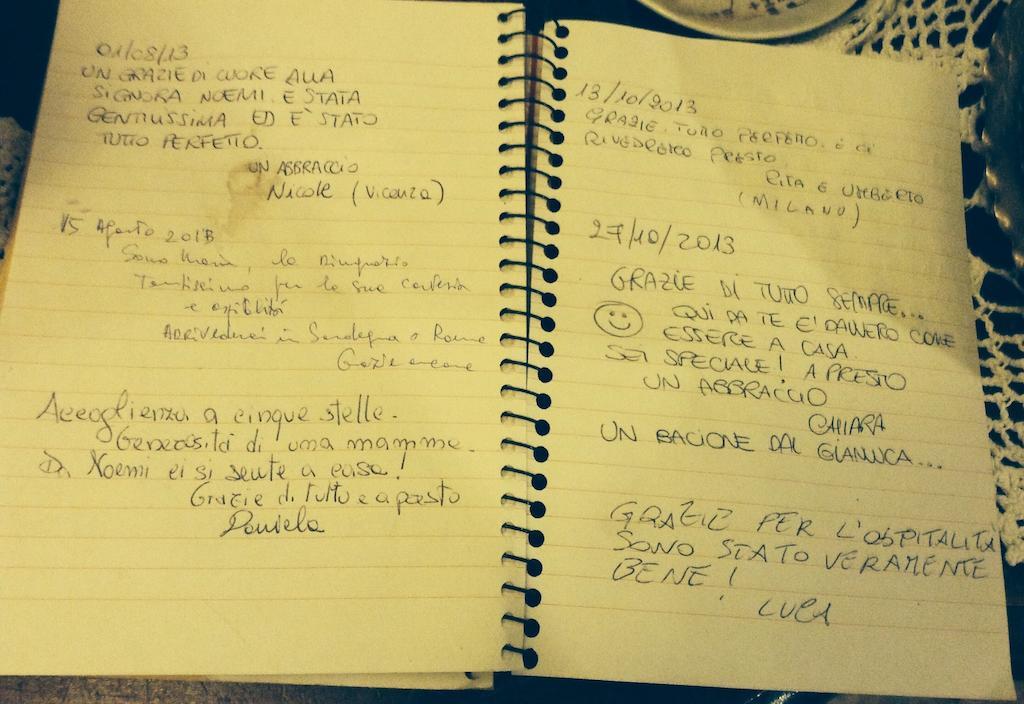 01/08/13
UN GRAZIE DI CUORE ALLA
SIGNORA NOEMI. E STATA
GENTILISSIMA ED E' STATO
TUTTO PERFETTO.
UN ABBRACCIO
Nicole (Vicenza)
15 Agosto 2013
Sono Maria, la Ringrazio
Tantissimo per la sua cortesia
e
Arrivederci in Sardegna o Roma
Grazie ancora
Accoglienza a cinque stelle.
Generosità di una mamma.
Da Noemi ci si sente a casa!
Grazie di tutto e a presto
Daniela
13/10/2013
GRAZIE. TUTTO PERFETTO. E CI
RIVEDREMO PRESTO.
RITA E UMBERTO
(MILANO)
27/10/2013
GRAZIE DI TUTTO SEMPRE...
QUI DA TE E' DAVVERO COME
ESSERE A CASA.
SEI SPECIALE! A PRESTO
UN ABBRACCIO
CHIARA
UN BACIONE DAL GIANLUCA...
GRAZIE PER L'OSPITALITÀ
SONO STATO VERAMENTE
BENE!
LUCA